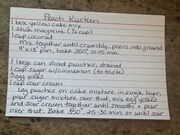 Peach Kuchen
1 box yellow cake mix
1 stick margarine (½ cup)
1 cup coconut
Mix together until crumbly, press into greased
9"x13" pan, bake 350°, 10-15 min.
1 large can sliced peaches, drained
1 cup sugar w/cinnamon (to taste)
3 egg yolks
1 cup sour cream
Lay peaches on cake mixture in single layer,
pour sugar mixture over that, mix egg yolks
and sour cream together until smooth + pour
over that. Bake 350° 25-30 min or until